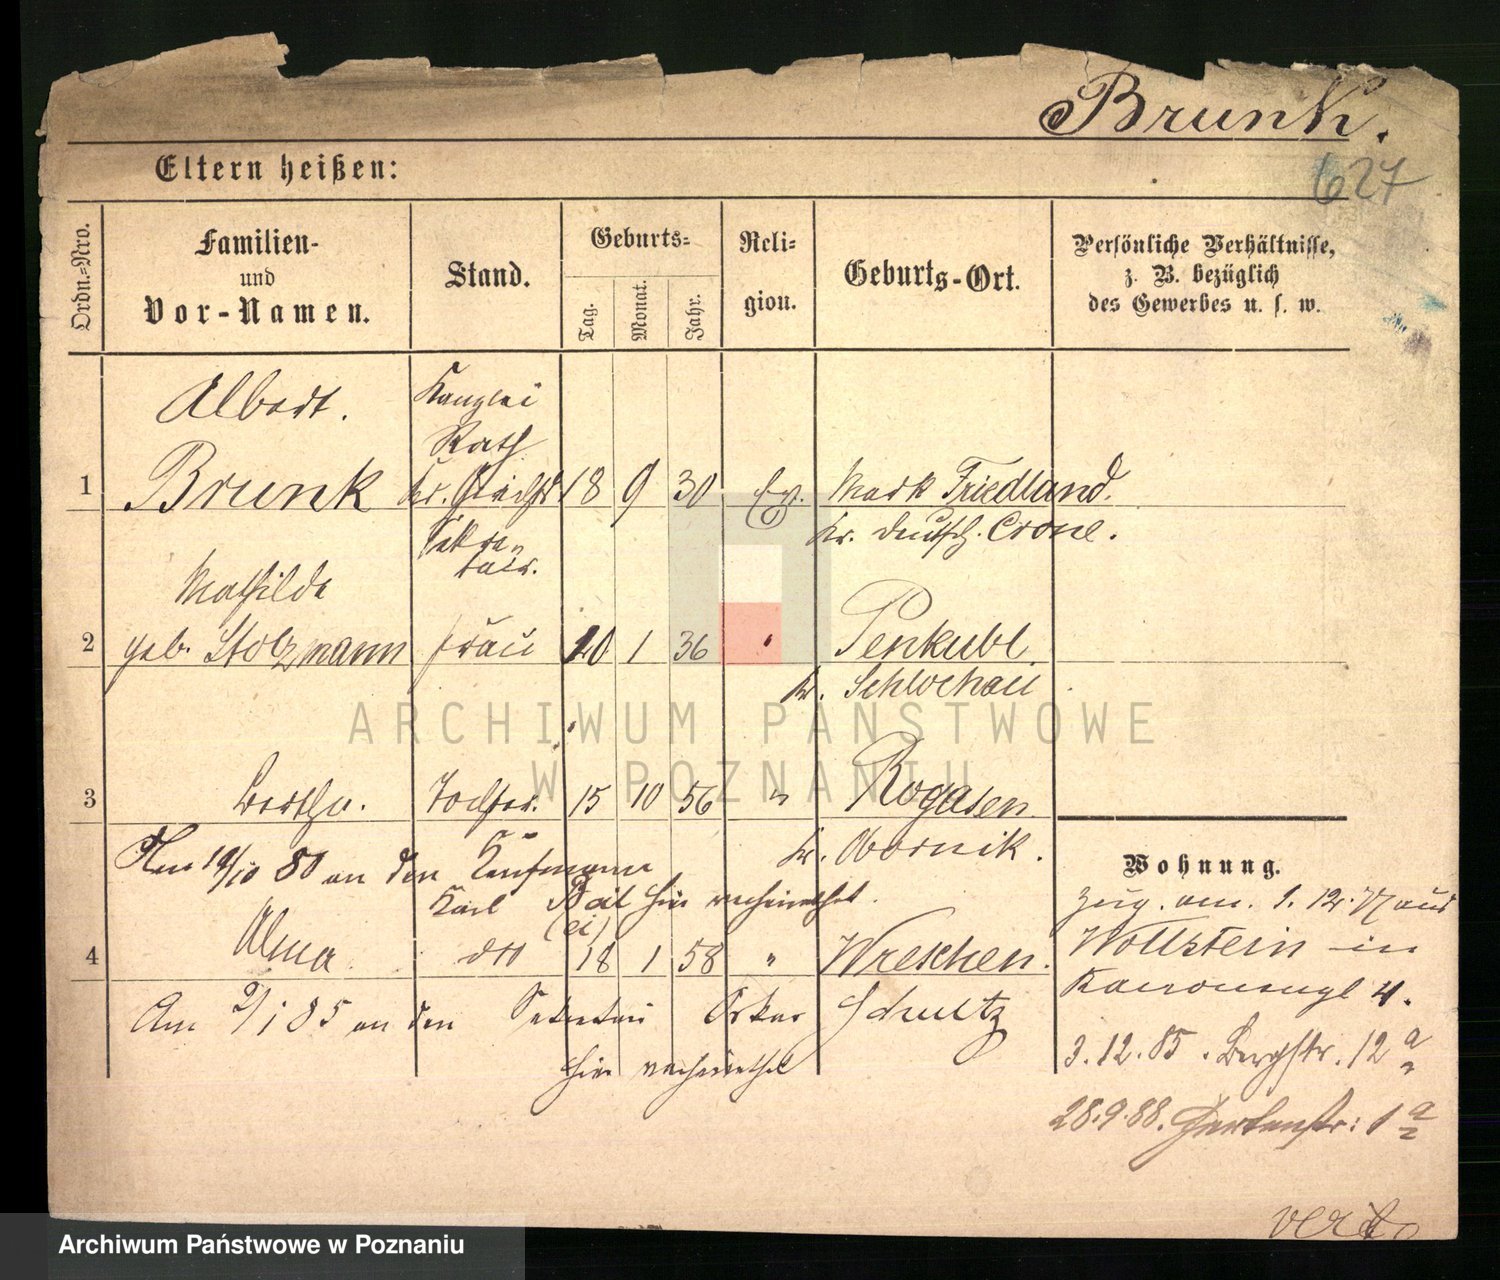 Brunk.
627
Eltern heißen:
Ordn.-Nro.
Familien-
und
Vor-Namen.
Stand.
Geburts-
Tag.
Monat.
Jahr.
Reli-
gion.
Geburts-Ort.
Persönliche Verhältnisse,
z. B. bezüglich
des Gewerbes u. s. w.
Albert.
Kanzlei
Rath
1 Brunk Kr. Gerichts 18 9 30 Ev. Mark Friedland.
Sekre-
tair.
Kr. Deutsch. Crone.
Mathilde
2 geb. Stolzmann Frau 20 1 36 " Penkuhl
Kr. Schlochau
3 Bertha. Tochter. 15 10 56 " Rogasen
Kr. Obornik.
Am 19/10 80 an den Kaufmann
Karl hier verheirathet.
(ei)
4 Alma dto 18 1 58 " Wreschen.
Am 9/1 85 an den Sekretair Oskar Schultz
hier verheirathet
Wohnung.
Zug. am. 1. 12. 77 aus
Wollstein in
Kanonengl 4.
3.12.85. Bergstr. 12 a
28.9.88. Gartenstr: 1 a
verte
ARCHIWUM PAŃSTWOWE
W POZNANIU
Archiwum Państwowe w Poznaniu